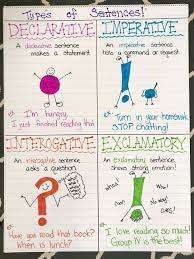 Types of Sentences!
DECLARATIVE
A declarative sentence
makes a statement.
I'm hungry.
I just finished reading that.
IMPERATIVE
An imperative sentence
gives a command or request.
Turn in your homework.
STOP chatting!
INTEROGATIVE
An interogative sentence
asks a question.
Have you read that book?
When is lunch?
EXCLAMATORY
An exclamatory sentence
shows strong emotion!
I love reading so much!
Group N is the best!